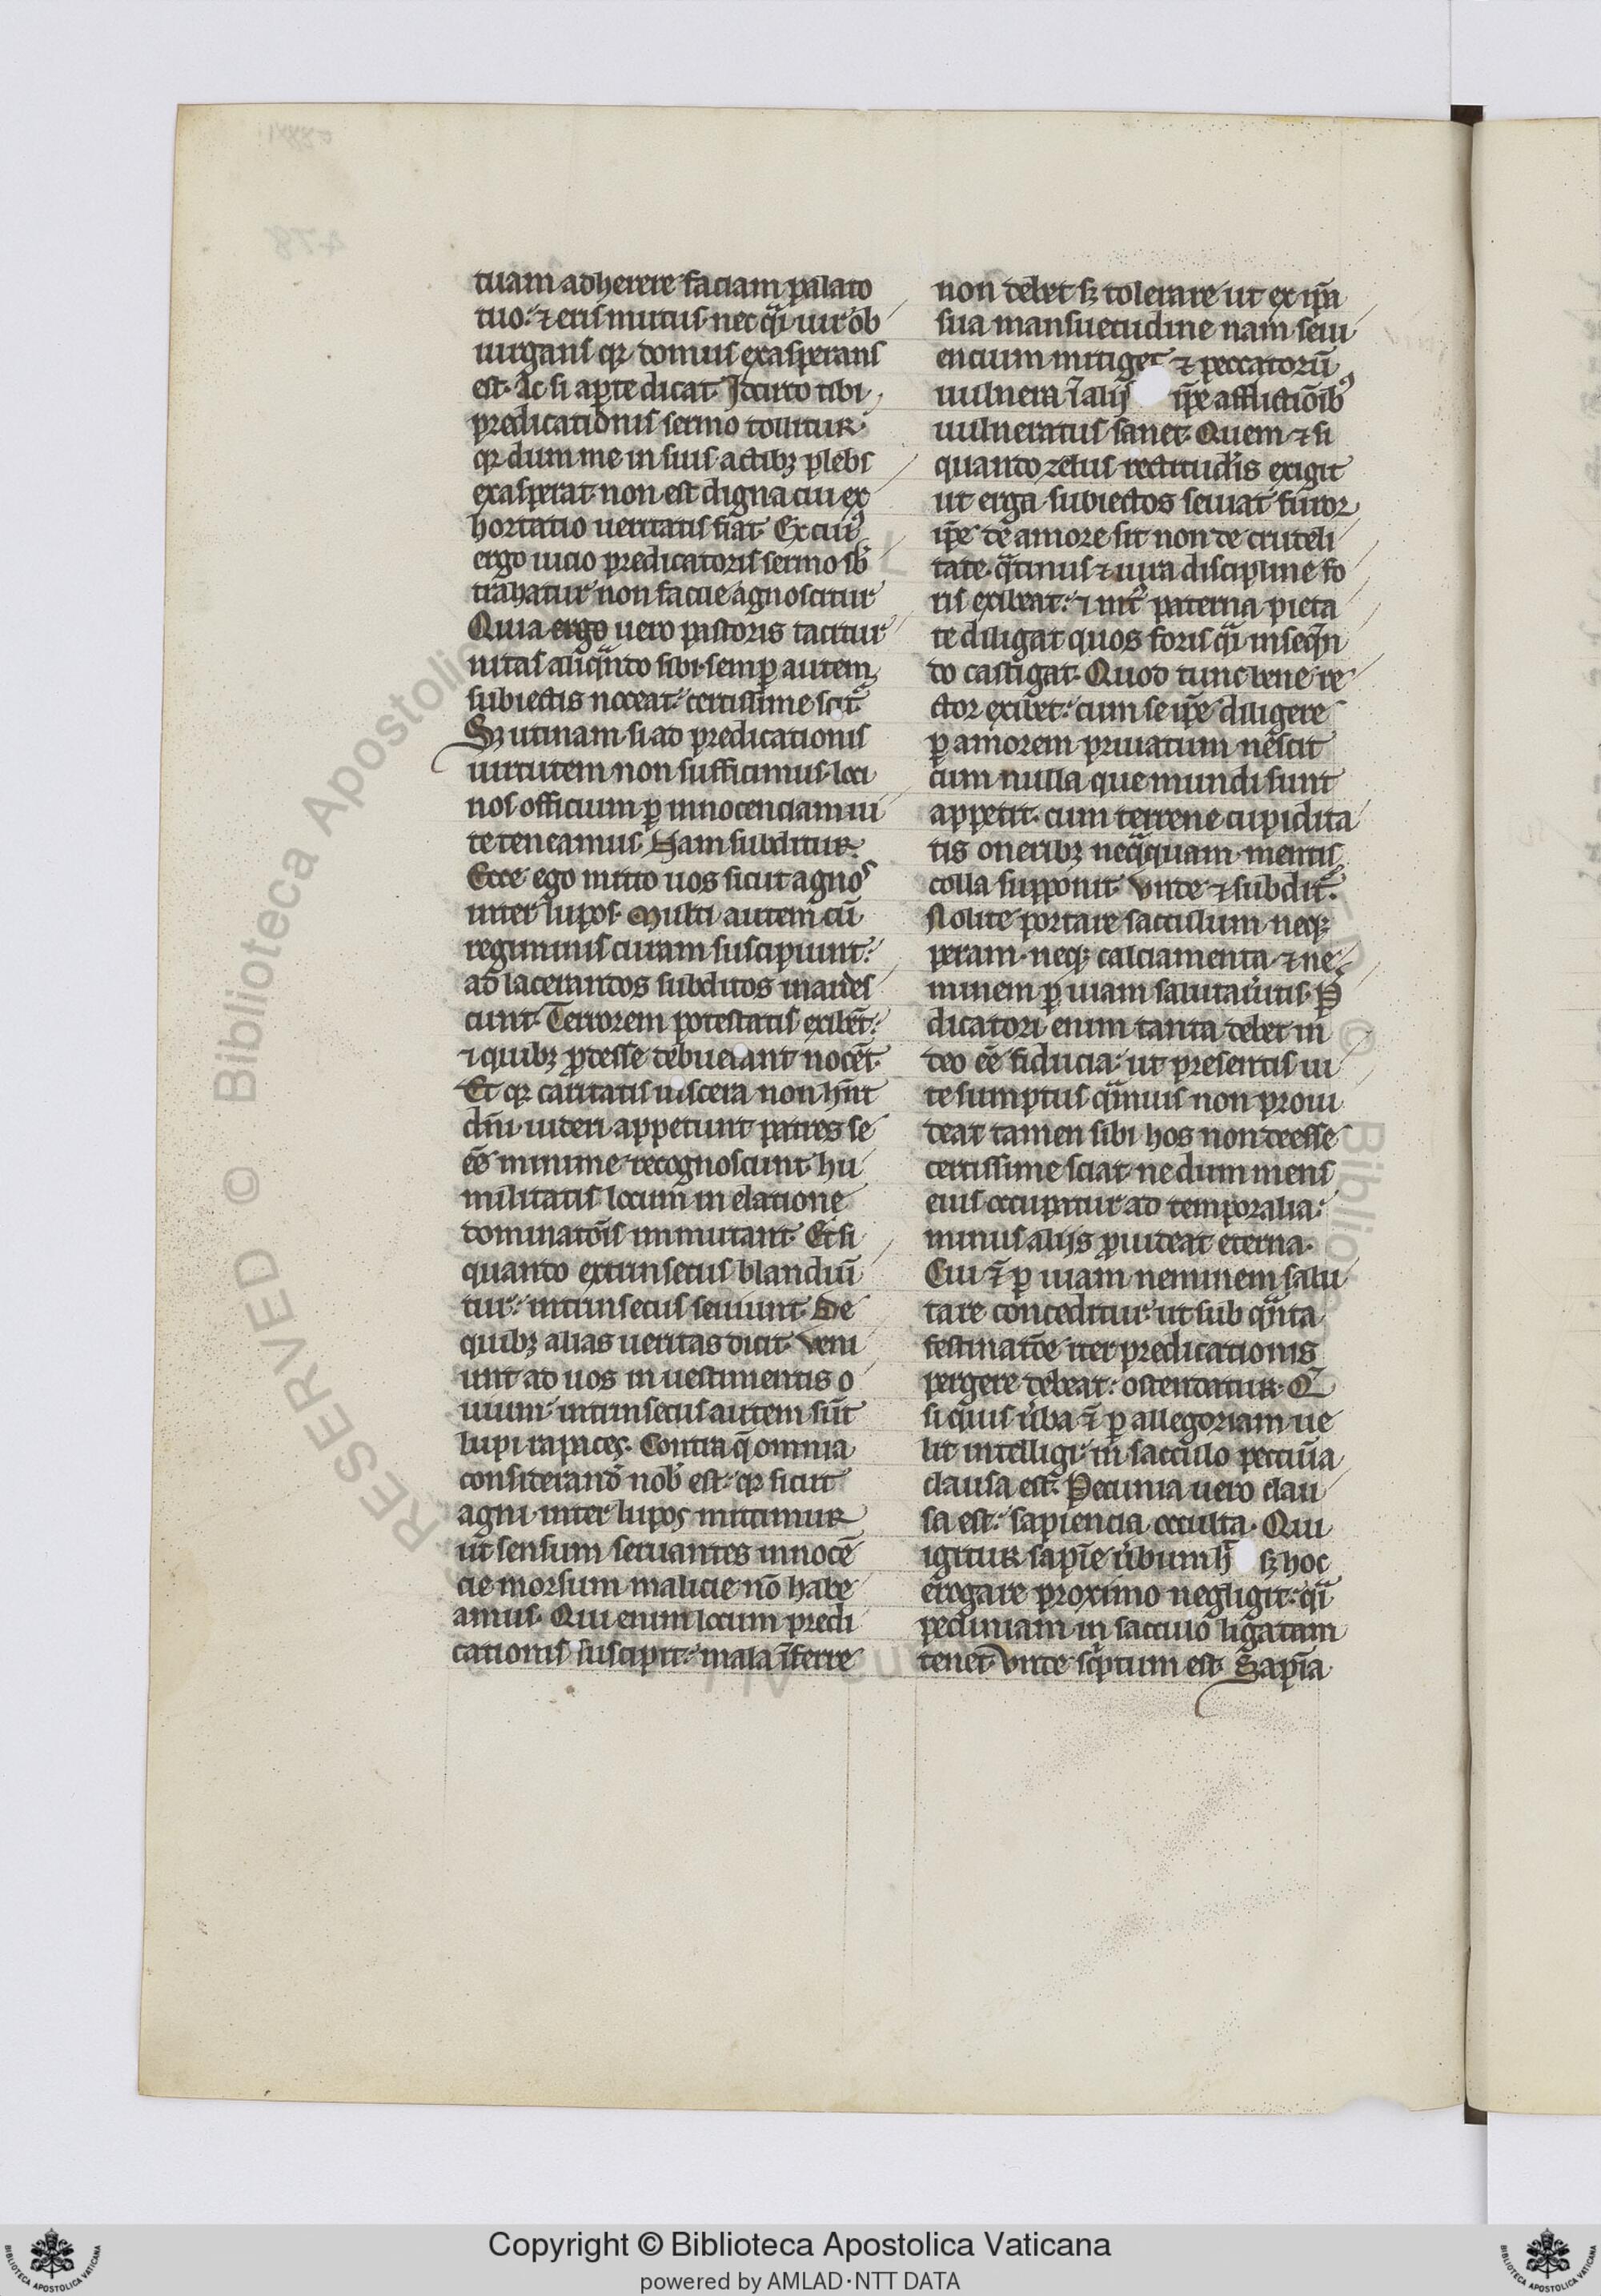 tuam adherere faciam palato
tuo. ⁊ eris mutus nec q̃i uir ob
iurgans qꝛ domus exasperans
est. Ac si aꝑte dicat. Iccirco tibi
predicationis sermo tollitur
qꝛ dum me in suis actibꝫ plebs
exasperat non est digna cui ex
hortatio ueritatis fiat. Ex cuiꝰ
ergo uicio predicatoris sermo sb̾
trahatur non facile agnoscitur
Quia ergo uero pastoris tacitur
nitas aliqͣnto sibi semꝑ autem
subiectis noceat. certissime scit̾.
Sꝫ utinam si ad predicationis
uirtutem non sufficimus loci
nos officium ꝑ innocenciam ui
te teneamus. Nam subditur.
Ecce ego mitto uos sicut agnos
inter lupos. Multi autem cū
regiminis curam suscipiunt.
ad lacerandos subditos inardes
cunt. Terrorem potestatis exibēt.
⁊ quibꝫ ꝓdesse debuerant nocēt.
Et qꝛ caritatis uiscera non hn̄t
dn̄i uideri appetunt patres se
eē minime recognoscunt hu
militatis locum in elatione
dominatōis immutant. Et si
quando extrinsecus blandiū
tur. intrinsecus seuiunt. De
quibꝫ alias ueritas dicit. Veni
unt ad uos in uestimentis o
uium intrinsecus autem sūt
lupi rapaces. Contra q̄ omnia
considerandū nob̾ est. qꝛ sicut
agni inter lupos mittimur
ut sensum seruantes innocē
cie morsum malicie nō habe
amus. Qui enim locum predi
cationis suscipit. mala īferre
non debet sꝫ tolerare ut ex ip̄a
sua mansuetudine iram seui
encium mitiget ⁊ peccatorū
uulnera ī alijs ip̄e afflictiōibꝰ
uulneratus sanet. Quem ⁊ si
quando zelus rectitudīs exigit
ut erga subiectos seuiat furor
ip̄e de amore sit non de crudeli
tate. q̄tinus ⁊ iura discipline fo
ris exibeat. ⁊ int̾ paterna pieta
te diligat quos foris q̃i inseqn̄
do castigat. Quod tunc bene re
ctor exibet. cum se ip̄e diligere
ꝑ amorem priuatum nescit
cum nulla que mundi sunt
appetit. cum terrene cupidita
tis oneribꝫ neq̃quam mentis
colla supponit. Vnde ⁊ subdit̾.
Nolite portare sacculum neqꝫ
peram. neqꝫ calciamenta ⁊ ne
minem ꝑ uiam salutau̾itis. P̄
dicatori enim tanta debet in
deo eē fiducia. ut presentis ui
te sumptus q̃muis non proui
deat tamen sibi hos non deesse
certissime sciat. ne dum mens
eius occupatur ad temporalia.
minus alijs ꝓuideat eterna.
Cui ⁊̄ ꝑ uiam neminem salu
tare conceditur ut sub qͣnta
festinatōe iter predicationis
pergere debeat. ostendatur. Q̄
si quis u̾ba ⁊̄ ꝑ allegoriam ue
lit intelligi. in sacculo pecūia
clausa est. Pecunia uero clau
sa est. sapiencia occulta. Qui
igitur sapīe u̾bum hꝫ sꝫ hoc
erogare proximo negligit. q̃i
pecuniam in sacculo ligatam
tenet. Vnde sc̾ptum est. Sapīa
Copyright © Biblioteca Apostolica Vaticana
powered by AMLAD·NTT DATA